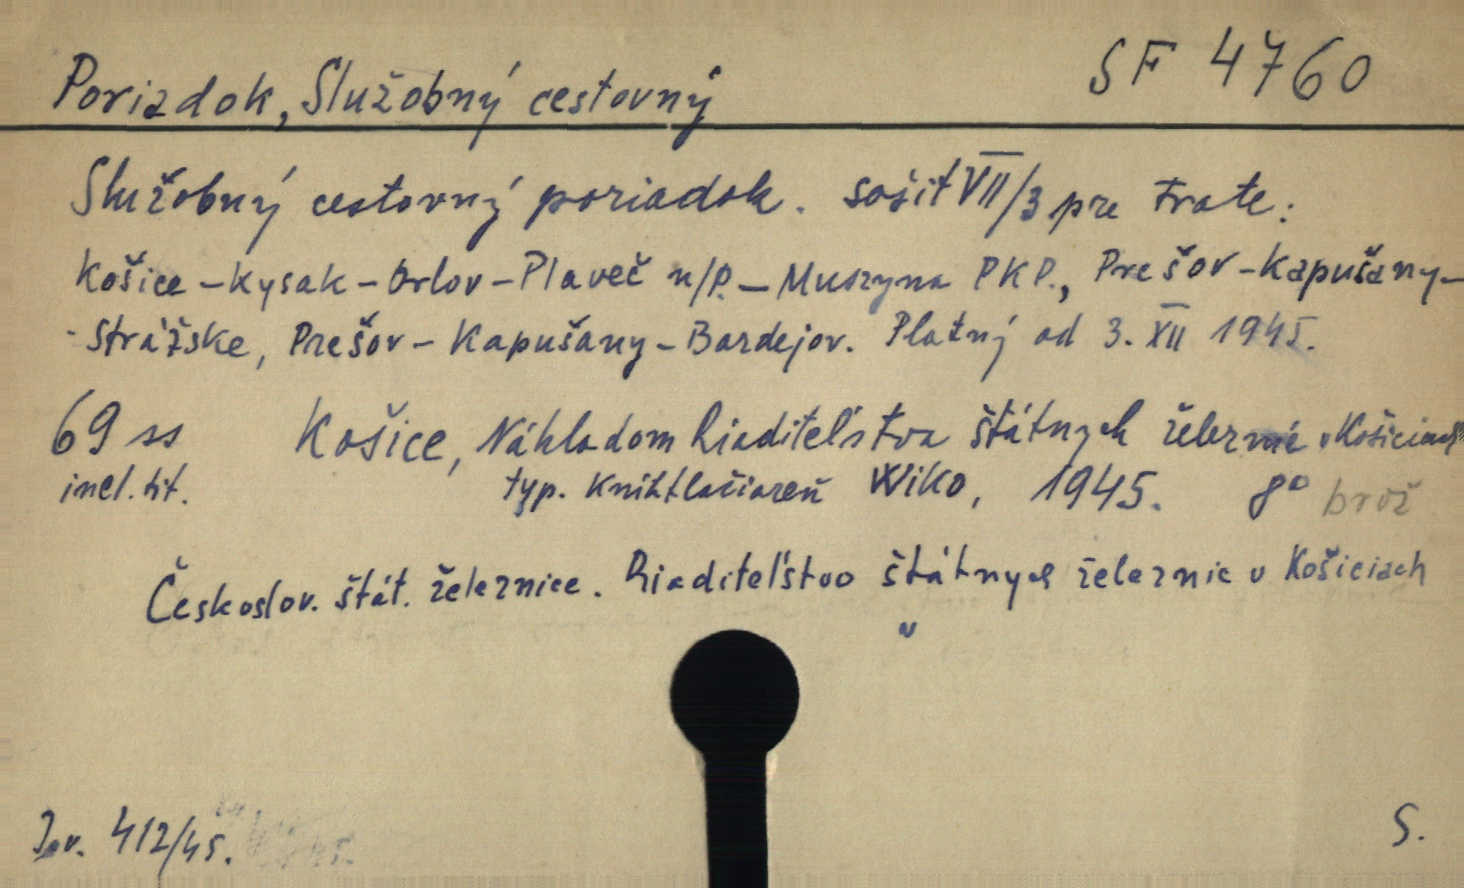 SF 4760
Poriadok, Služobný cestovný
Služobný cestovný poriadok. sošit VII/3 pre trate:
Košice-Kysak-Orlov-Plaveč n/P.-Muszyna PKP., Prešov-Kapušany-
-Strážske, Prešov-Kapušany-Bardejov. Platný od 3. XII 1945.
69 ss Košice, Nákladom Riaditeľstva štátnych železníc v Košiciach
incl. tit. typ. Kníhtlačiareň Wiko, 1945. 8° brož
Českoslov. štát. železnice. Riaditeľstvo štátnych železníc v Košiciach
412/45. S.